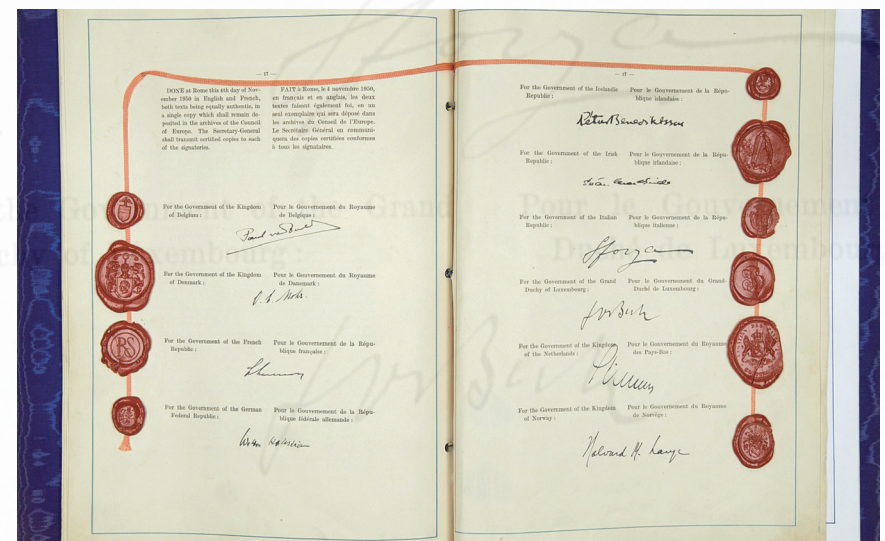 — 17 —
DONE at Rome this 4th day of Nov-
ember 1950 in English and French,
both texts being equally authentic, in
a single copy which shall remain de-
posited in the archives of the Council
of Europe. The Secretary-General
shall transmit certified copies to each
of the signatories.
FAIT à Rome, le 4 novembre 1950,
en français et en anglais, les deux
textes faisant également foi, en un
seul exemplaire qui sera déposé dans
les archives du Conseil de l'Europe.
Le Secrétaire Général en communi-
quera des copies certifiées conformes
à tous les signataires.
For the Government of the Kingdom
of Belgium :
Pour le Gouvernement du Royaume
de Belgique :
For the Government of the Kingdom
of Denmark :
Pour le Gouvernement du Royaume
de Danemark :
For the Government of the French
Republic :
Pour le Gouvernement de la Répu-
blique française :
RS
For the Government of the German
Federal Republic :
Pour le Gouvernement de la Répu-
blique fédérale allemande :
— 17 —
For the Government of the Icelandic
Republic :
Pour le Gouvernement de la Répu-
blique islandaise :
For the Government of the Irish
Republic :
Pour le Gouvernement de la Répu-
blique irlandaise :
For the Government of the Italian
Republic :
Pour le Gouvernement de la Répu-
blique italienne :
Sforza
For the Government of the Grand
Duchy of Luxembourg :
Pour le Gouvernement du Grand-
Duché de Luxembourg :
Jos Bech
For the Government of the Kingdom
of the Netherlands :
Pour le Gouvernement du Royaume
des Pays-Bas :
For the Government of the Kingdom
of Norway :
Pour le Gouvernement du Royaume
de Norvège :
Halvard M. Lange